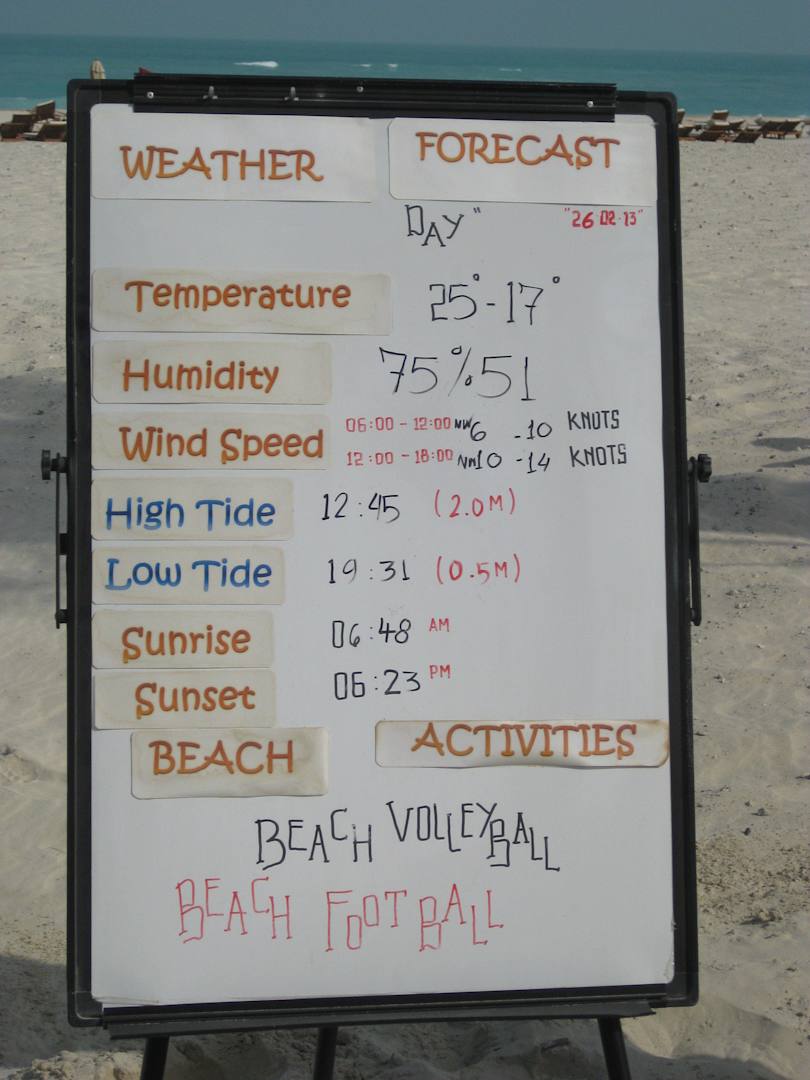 WEATHER FORECAST
DAY" "26·02·13"
Temperature 25°-17°
Humidity 75%51
Wind Speed 06:00 - 12:00 NW 6 -10 KNOTS
12:00 - 18:00 NW 10 -14 KNOTS
High Tide 12:45 (2.0M)
Low Tide 19:31 (0.5M)
Sunrise 06:48 AM
Sunset 06:23 PM
BEACH ACTIVITIES
BEACH VOLLEYBALL
BEACH FOOTBALL